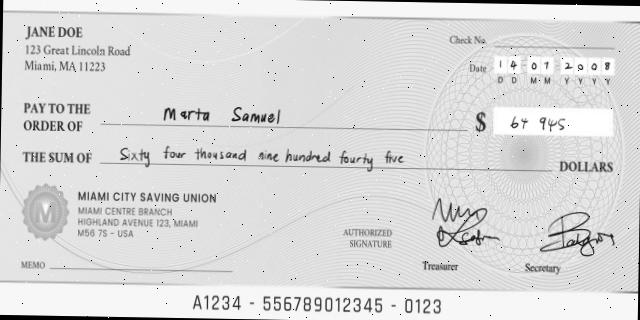 JANE DOE
123 Great Lincoln Road
Miami, MA 11223
Check No.
Date 14 07 2008
D D M M Y Y Y Y
PAY TO THE
ORDER OF Marta Samuel
$ 64 945.
THE SUM OF Sixty four thousand nine hundred fourty five DOLLARS
MIAMI CITY SAVING UNION
MIAMI CENTRE BRANCH
HIGHLAND AVENUE 123, MIAMI
M56 7S - USA
M
AUTHORIZED
SIGNATURE
MEMO
Treasurer
Secretary
A1234 - 556789012345 - 0123